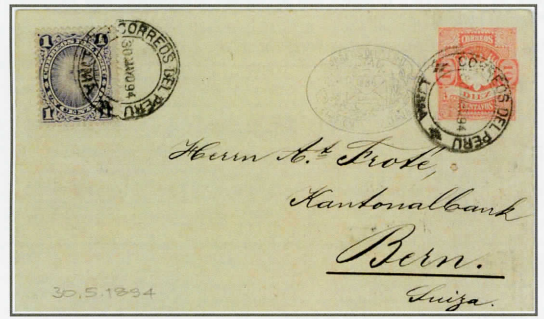 CORREOS DEL PERU
LIMA
30 MAYO 94
1
1
CORREOS DEL PERU
LIMA
94
10
DIEZ
CENTAVOS
Herrn A.t Froté,
Kantonalbank
Bern.
Suiza.
30.5.1894